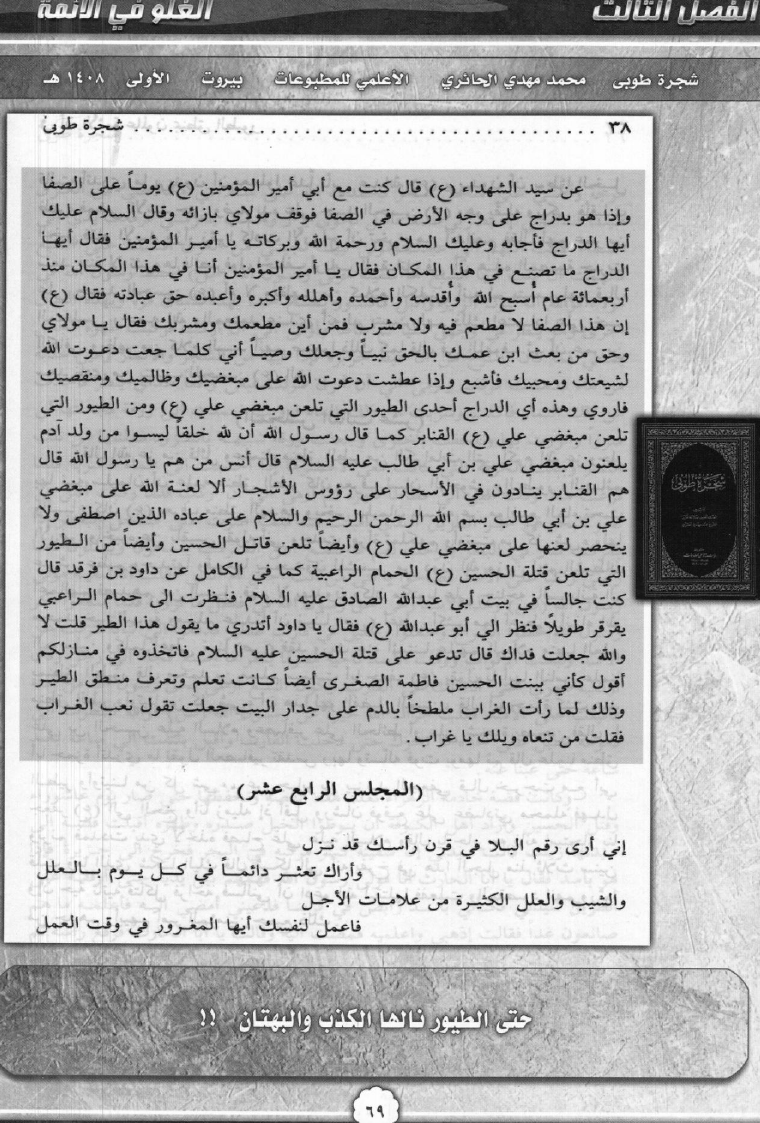 الفصل الثالث
الغلو في الأئمة
شجرة طوبى محمد مهدي الحائري الأعلمي للمطبوعات بيروت الأولى ١٤٠٨ هـ
٣٨ . . . . . . . . . . . . . . . . . . . . . . . . . . . . . . . . . . . . . شجرة طوبى
عن سيد الشهداء (ع) قال كنت مع أبي أمير المؤمنين (ع) يوماً على الصفا
وإذا هو بدراج على وجه الأرض في الصفا فوقف مولاي بازائه وقال السلام عليك
أيها الدراج فأجابه وعليك السلام ورحمة الله وبركاته يا أمير المؤمنين فقال أيها
الدراج ما تصنع في هذا المكان فقال يا أمير المؤمنين أنا في هذا المكان منذ
أربعمائة عام أُسبح الله وأُقدسه وأحمده وأهلله وأكبره وأعبده حق عبادته فقال (ع)
إن هذا الصفا لا مطعم فيه ولا مشرب فمن أين مطعمك ومشربك فقال يا مولاي
وحق من بعث ابن عمك بالحق نبياً وجعلك وصياً أني كلما جعت دعوت الله
لشيعتك ومحبيك فأشبع وإذا عطشت دعوت الله على مبغضيك وظالميك ومنقصيك
فاروي وهذه أي الدراج أحدى الطيور التي تلعن مبغضي علي (ع) ومن الطيور التي
تلعن مبغضي علي (ع) القنابر كما قال رسول الله أن لله خلقاً ليسوا من ولد آدم
يلعنون مبغضي علي بن أبي طالب عليه السلام قال أنس من هم يا رسول الله قال
هم القنابر ينادون في الأسحار على رؤوس الأشجار ألا لعنة الله على مبغضي
علي بن أبي طالب بسم الله الرحمن الرحيم والسلام على عباده الذين اصطفى ولا
ينحصر لعنها على مبغضي علي (ع) وأيضاً تلعن قاتل الحسين وأيضاً من الطيور
التي تلعن قتلة الحسين (ع) الحمام الراعبية كما في الكامل عن داود بن فرقد قال
كنت جالساً في بيت أبي عبدالله الصادق عليه السلام فنظرت الى حمام الراعبي
يقرقر طويلاً فنظر الي أبو عبدالله (ع) فقال يا داود أتدري ما يقول هذا الطير قلت لا
والله جعلت فداك قال تدعو على قتلة الحسين عليه السلام فاتخذوه في منازلكم
أقول كأني ببنت الحسين فاطمة الصغرى أيضاً كانت تعلم وتعرف منطق الطير
وذلك لما رأت الغراب ملطخاً بالدم على جدار البيت جعلت تقول نعب الغراب
فقلت من تنعاه ويلك يا غراب .
(المجلس الرابع عشر)
إني أرى رقم البلا في قرن رأسك قد نزل
وأراك تعثر دائماً في كل يوم بالعلل
والشيب والعلل الكثيرة من علامات الأجل
فاعمل لنفسك أيها المغرور في وقت العمل
شجرة طوبى
حتى الطيور نالها الكذب والبهتان !!
٦٩